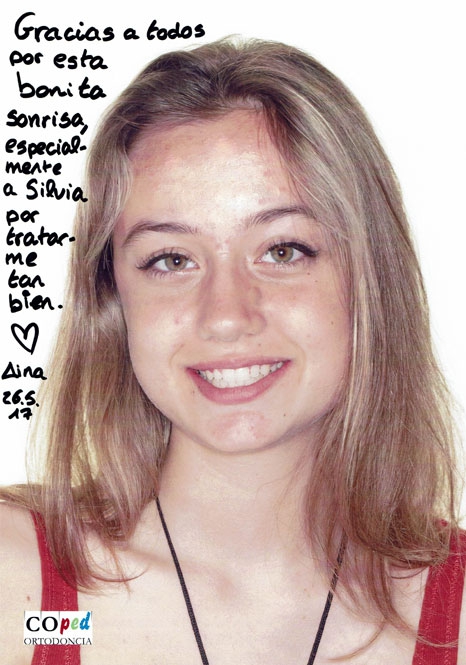 Gracias a todos
por esta
bonita
sonrisa,
especial-
mente
a Silvia
por
tratar-
me
tan
bien.
♡
Aina
26.5.
17
COped
ORTODONCIA